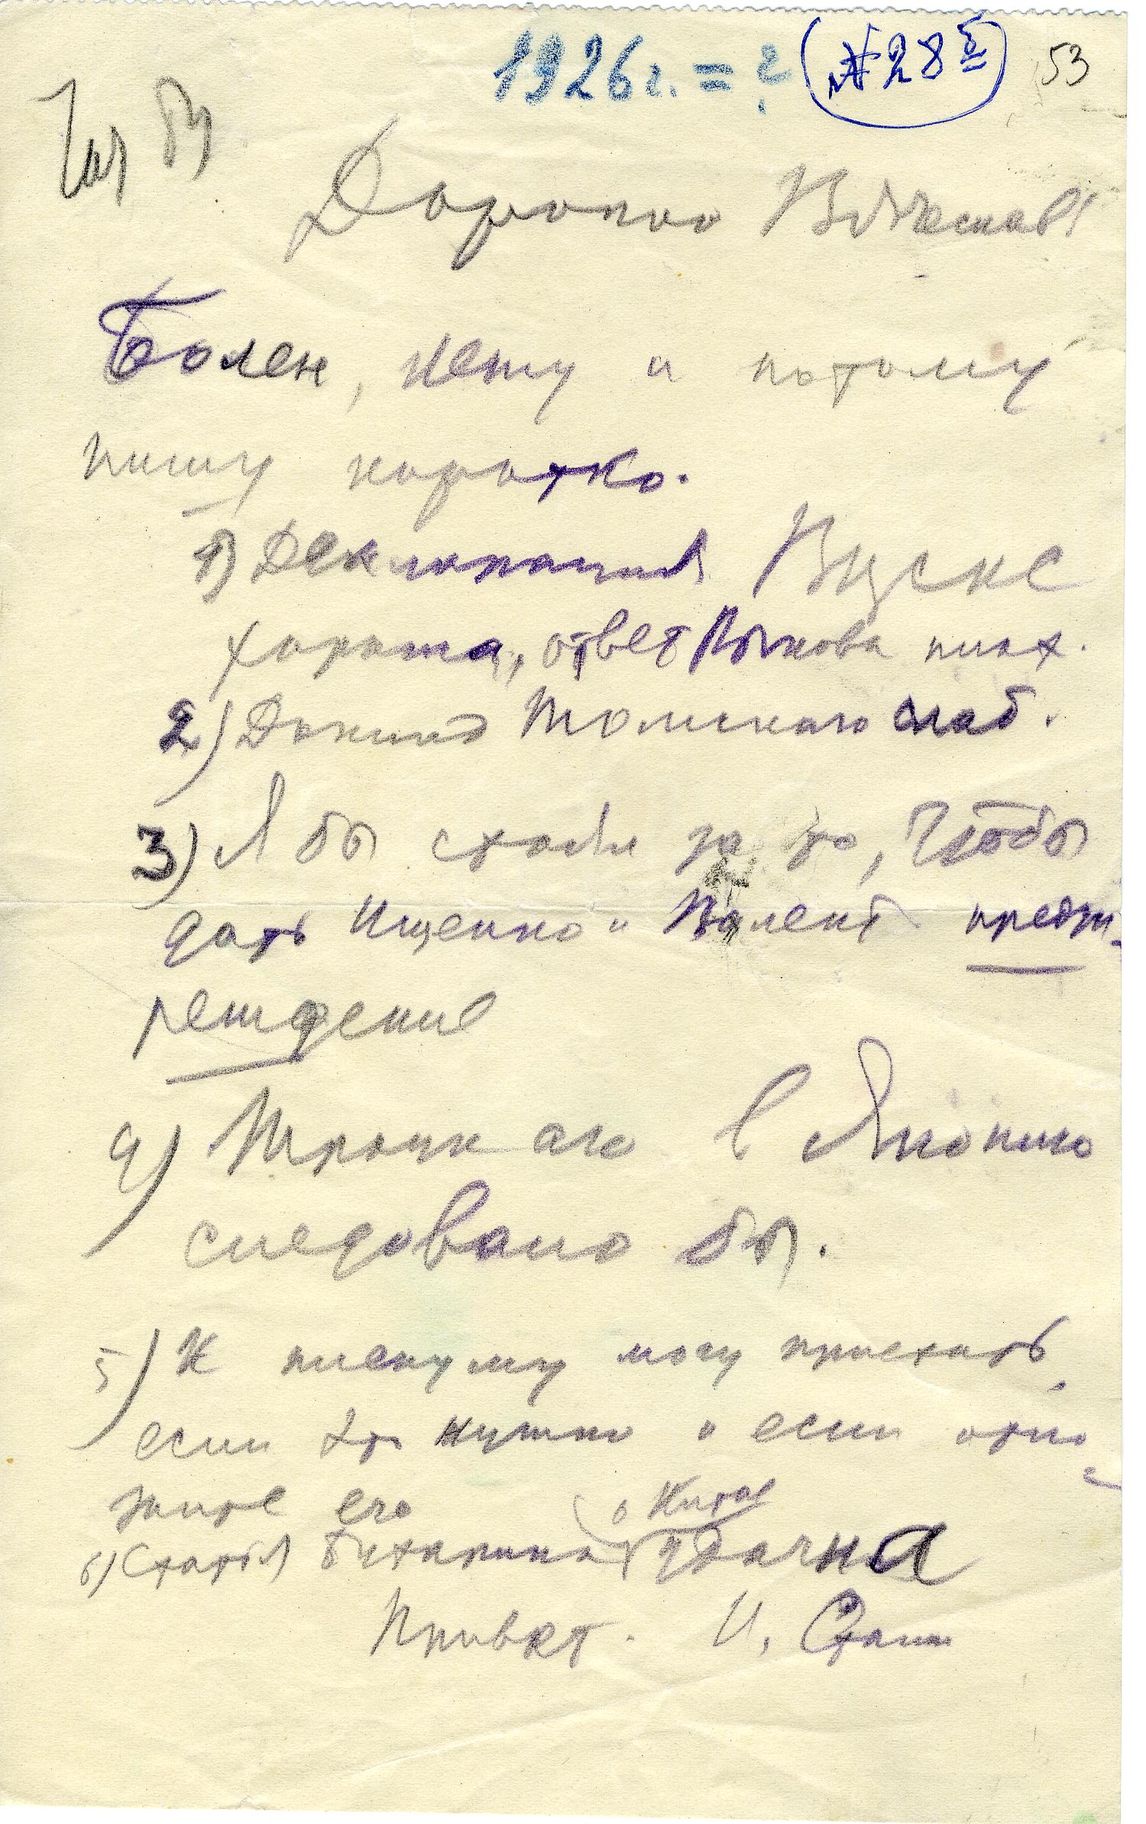 1926 г. = ? (№ 28 б) 53
Дорогой Вячеслав!
Болен, лежу и потому
пишу коротко.
1) Декларация Вцспс
хороша, ответ Рыкова плох.
2) Доклад Томского слаб.
3) Я бы стоял за то, чтобы
дать Ищенко и Полент предуп-
реждение
4) Троцкаго в Японию
следовало бы.
5) К пленуму могу приехать,
если это нужно и если отло-
жите его
о Китае
6) Статья Бухарина удачна
Привет. И. Сталин